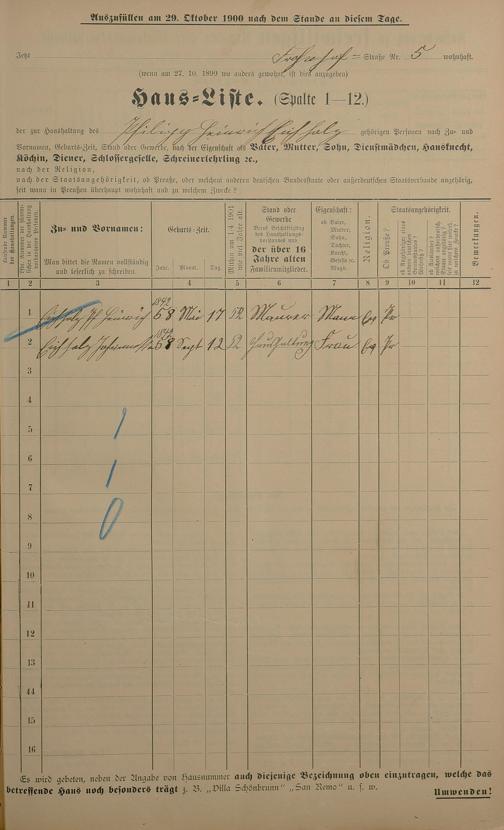 Auszufüllen am 29. Oktober 1900 nach dem Stande an diesem Tage.
Jetzt Frohnhof = Straße Nr. 5 wohnhaft.
(wenn am 27. 10. 1899 wo anders gewohnt, ist dies anzugeben)
Haus-Liste. (Spalte 1—12.)
der zur Haushaltung des Philipp Heinrich Eichholz gehörigen Personen nach Zu- und
Vornamen, Geburts-Zeit, Stand oder Gewerbe, nach der Eigenschaft als Vater, Mutter, Sohn, Dienstmädchen, Hausknecht,
Köchin, Diener, Schlossergeselle, Schreinerlehrling 2c.,
nach der Religion,
nach der Staatsangehörigkeit, ob Preuße, oder welchem anderen deutschen Bundesstaate oder außerdeutschen Staatsverbande angehörig,
seit wann in Preußen überhaupt wohnhaft und zu welchem Zwecke?
Zu- und Vornamen:
Man bittet die Namen vollständig und leserlich zu schreiben.
Geburts-Zeit.
Jahr. Monat. Tag.
Mithin am 1/4 1901 wie viel Jahre alt.
Stand oder Gewerbe
der über 16 Jahre alten Familienmitglieder.
Eigenschaft:
ob Vater, Mutter, Sohn, Tochter, Knecht, Geselle 2c. Magd.
Religion.
Staatsangehörigkeit.
Ob Preuße?
Bemerkungen.
1 2 3 4 5 6 7 8 9 10 11 12
1 Eichholz Ph Heinrich 58 Mai 17 52 Maurer Mann Ev Pr
2 Eichholz 58 Sept 12 52 Haushaltung Frau Ev Pr
3
4
1
5
6
1
7
8
0
9
10
11
12
13
14
15
16
Es wird gebeten, neben der Angabe von Hausnummer auch diejenige Bezeichnung oben einzutragen, welche das
betreffende Haus noch besonders trägt z. B. „Villa Schönbrunn" „San Remo" u. s. w.
Umwenden!